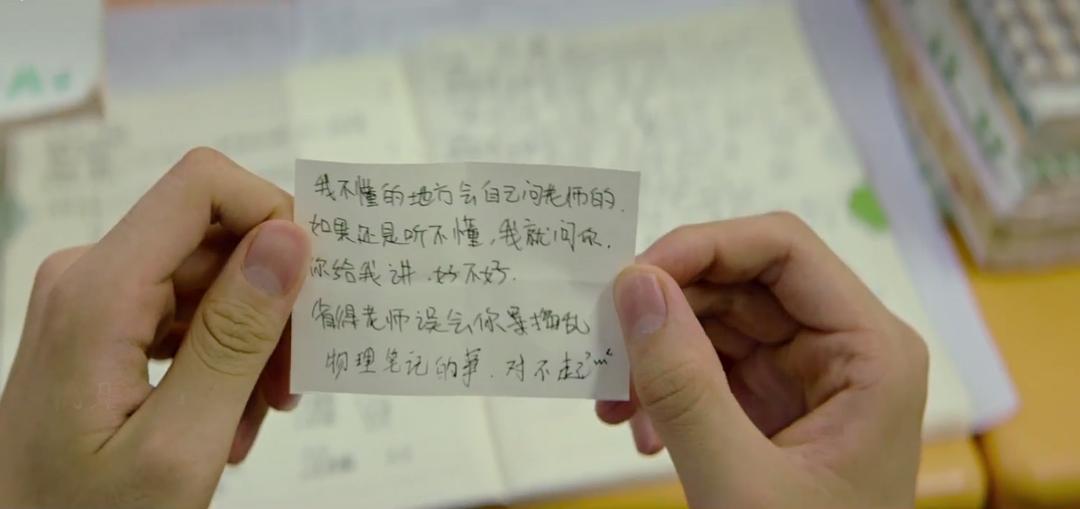 我不懂的地方会自己问老师的.
如果还是听不懂,我就问你.
你给我讲.好不好.
省得老师误会你要捣乱
物理笔记的事.对不起